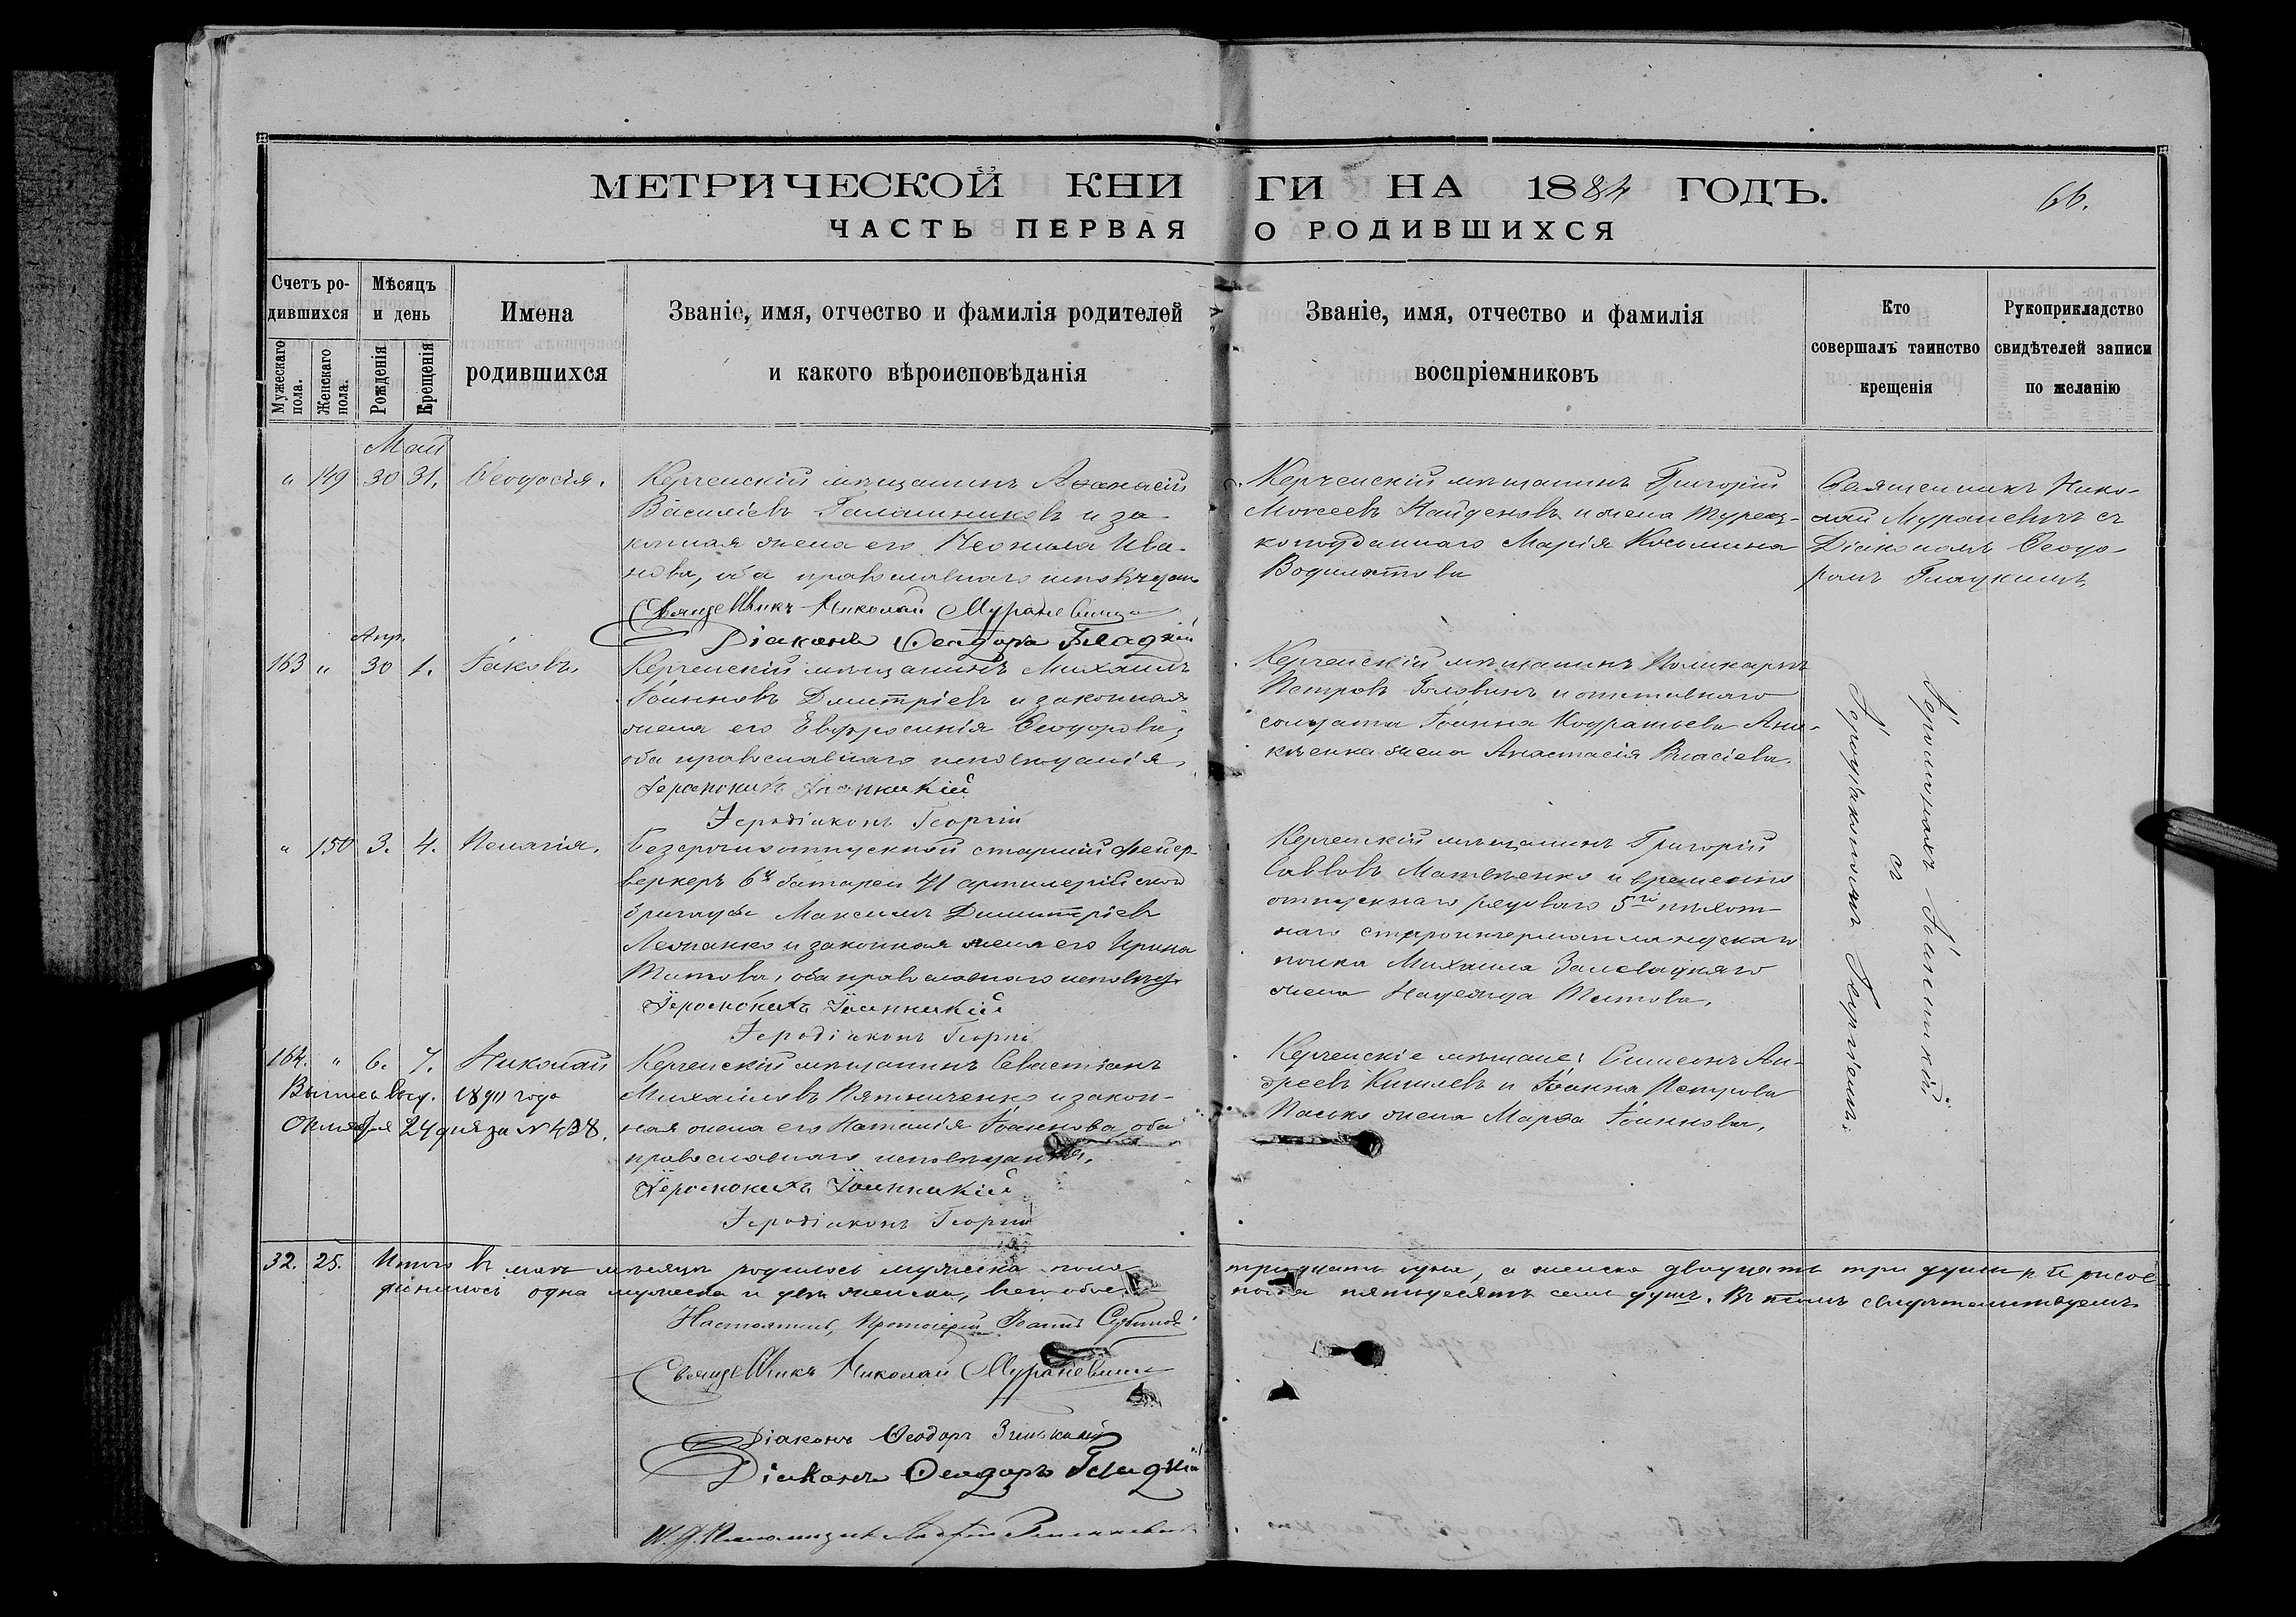 МЕТРИЧЕСКОЙ КНИГИ НА 1884 ГОДЪ.
66.
ЧАСТЬ ПЕРВАЯ О РОДИВШИХСЯ
Счетъ родившихся
Мужескаго пола.
Женскаго пола.
Мѣсяцъ и день
Рожденія
Крещенія
Имена
родившихся
Званіе, имя, отчество и фамилія родителей
и какого вѣроисповѣданія
Званіе, имя, отчество и фамилія
воспріемниковъ
Кто
совершалъ таинство
крещенія
Рукоприкладство
свидѣтелей записи
по желанію
Май
" 149 30 31. Ѳеодосія.
Керченскій мѣщанинъ Аѳанасій
Василіевъ и за-
конная жена его Неонила Ива-
нова, оба православнаго
Священникъ Николай Мураневичъ
Діаконъ Ѳеодоръ Гладкій
Керченскій мѣщанинъ Григорій
Моисеевъ Найденовъ и жена турец-
коподданнаго Марія Косьмина
Священникъ Нико-
лай Мураневичъ съ
Діакономъ Ѳеодо-
ромъ Гладкимъ
Апр.
163 " 30 1. Іаковъ
Керченскій мѣщанинъ Михаилъ
Іоанновъ Димитріевъ и законная
жена его Евфросинія Ѳеодорова,
оба православнаго исповѣданія,
Іеромонахъ Іоанникій
Іеродіаконъ Георгій
Керченскій мѣщанинъ Поликарпъ
Петровъ Головинъ и отставнаго
солдата Іоанна Кодратьева Ани-
кѣенка жена Анастасія Власіева.
Іеромонахъ Іоанникій
съ
Іеродіакономъ Георгіемъ.
" 150 3. 4. Пелагія.
Безсрочноотпускной старшій фейер-
веркеръ 6й батареи 41 артилерійской
бригады Максимъ Димитріевъ
и законная жена его Ирина
Титова, оба православнаго исповѣд.
Іеромонахъ Іоанникій
Іеродіаконъ Георгій
Керченскій мѣщанинъ Григорій
Савовъ Матвѣенко и временно
отпускнаго рядоваго 5го пѣхот-
наго
полка Михаила
жена Надежда Титова.
164. " 6. 7. Николай
Выпись выд. 1890 года
Октября 24 дня за № 438.
Керченскій мѣщанинъ Севастіанъ
Михаиловъ Пятниченко и закон-
ная жена его Наталія Іоаннова, оба
православнаго исповѣданія.
Іеромонахъ Іоанникій
Іеродіаконъ Георгій
Керченскіе мѣщане: Симеонъ Ан-
дреевъ и Іоанна Петрова
жена Марѳа Іоаннова.
32. 25. Итого въ маѣ мѣсяцѣ родилось мужеска пола тридцать одна, а женска двадцать три души и присое-
динилось одна мужеска и двѣ женска, всего обоего пола пятьдесятъ семь душъ. Въ чемъ свидѣтельствуемъ
Настоятель, Протоіерей Іоаннъ
Священникъ Николай Мураневичъ
Діаконъ Ѳеодоръ
Діаконъ Ѳеодоръ Гладкій